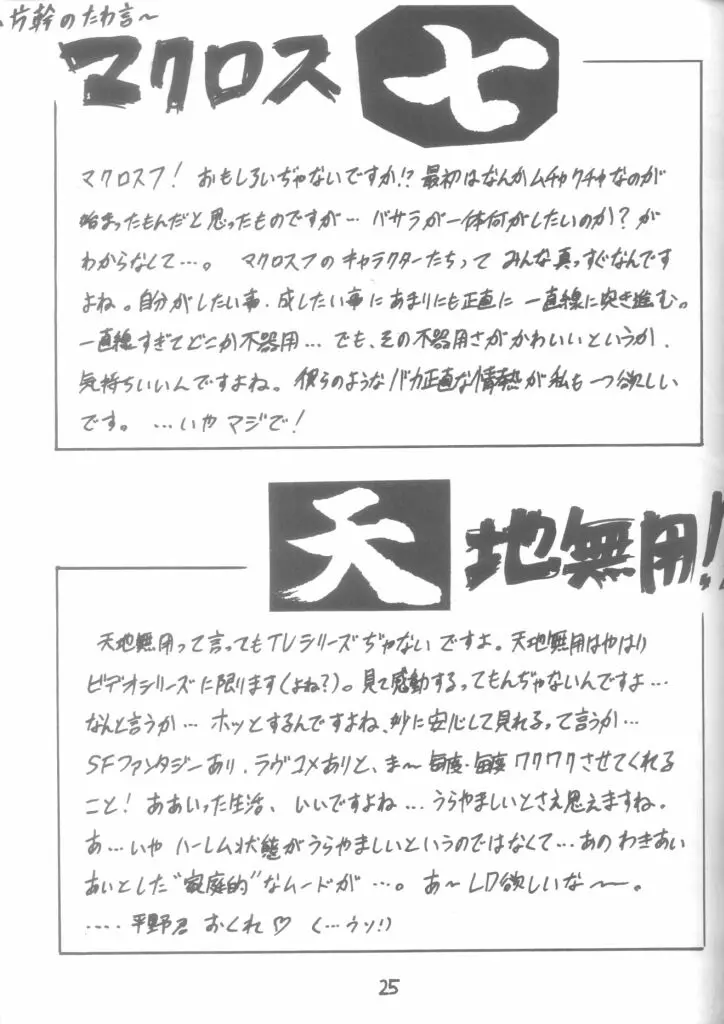 片幹のたわ言～
マクロス 七
マクロス7! おもしろいぢゃないですか!? 最初はなんかムチャクチャなのが
始まったもんだと思ったものですが… バサラが一体何がしたいのか?が
わからなして…。 マクロス7のキャラクターたちって みんな真っすぐなんです
よね。自分がしたい事、成したい事にあまりにも正直に 一直線に突き進む。
一直線すぎてどこか不器用… でも、その不器用さがかわいいというか、
気持ちいいんですよね。彼らのようなバカ正直な情熱が私も一つ欲しい
です。 …いやマジで!
天地無用!
天地無用って言ってもTVシリーズぢゃないですよ。天地無用はやはり
ビデオシリーズに限ります(よね?)。見て感動するってもんぢゃないんですよ…
なんと言うか… ホッとするんですよね、妙に安心して見れるって言うか…
SFファンタジーあり、ラヴコメありと、ま～ 毎度・毎度ワクワクさせてくれる
こと! ああいった生活、いいですよね…. うらやましいとさえ思えますね。
あ…いや ハーレム状態がうらやましいというのではなくて…あの わきあい
あいとした"家庭的"なムードが …。 あ～LD欲しいな～。
‥‥. 平野君 おくれ♡ (…ウソ!)
25